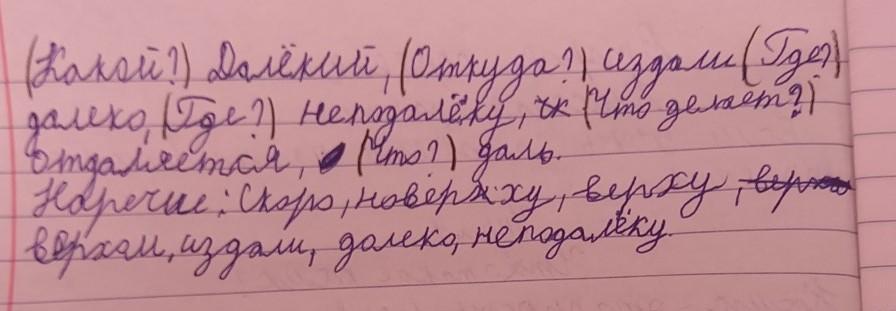 (Какой?) Далёкий, (Откуда?) издали (Где?)
далеко, (Где?) неподалёку, (Что делает?)
отдаляется, (Что?) даль.
Наречие: Скоро, наверху, верху,
верхом, издали, далеко, неподалёку.